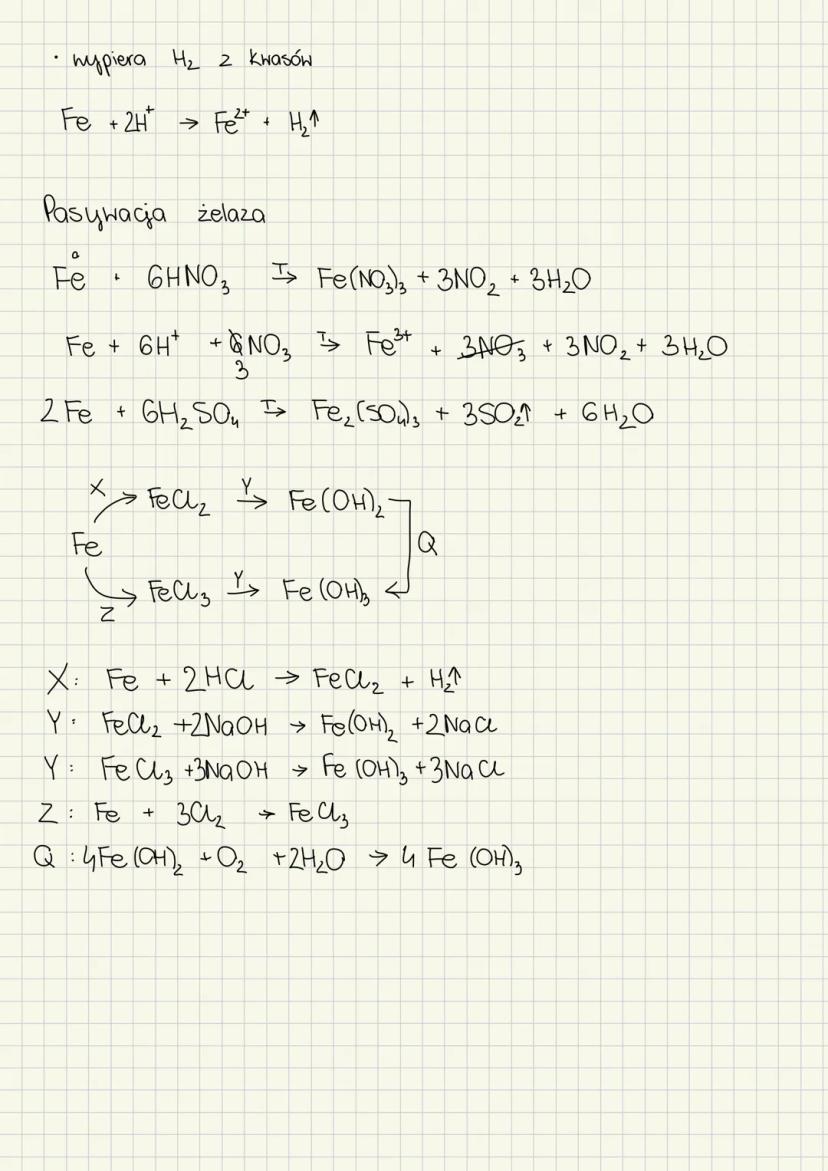 · wypiera H₂ z kwasów
Fe + 2H⁺ → Fe²⁺ + H₂↑
Pasywacja żelaza
Fe + 6HNO₃ T→ Fe(NO₃)₃ + 3NO₂ + 3H₂O
Fe + 6H⁺ + 3NO₃ T→ Fe³⁺ + 3NO₃ + 3NO₂ + 3H₂O
2Fe + 6H₂SO₄ T→ Fe₂(SO₄)₃ + 3SO₂↑ + 6H₂O
X → FeCl₂ Y→ Fe(OH)₂
Fe Q
Z → FeCl₃ Y→ Fe(OH)₃
X: Fe + 2HCl → FeCl₂ + H₂↑
Y: FeCl₂ +2NaOH → Fe(OH)₂ +2NaCl
Y: FeCl₃ +3NaOH → Fe(OH)₃ +3NaCl
Z: Fe + 3Cl₂ → FeCl₃
Q: 4Fe(OH)₂ + O₂ +2H₂O → 4Fe(OH)₃